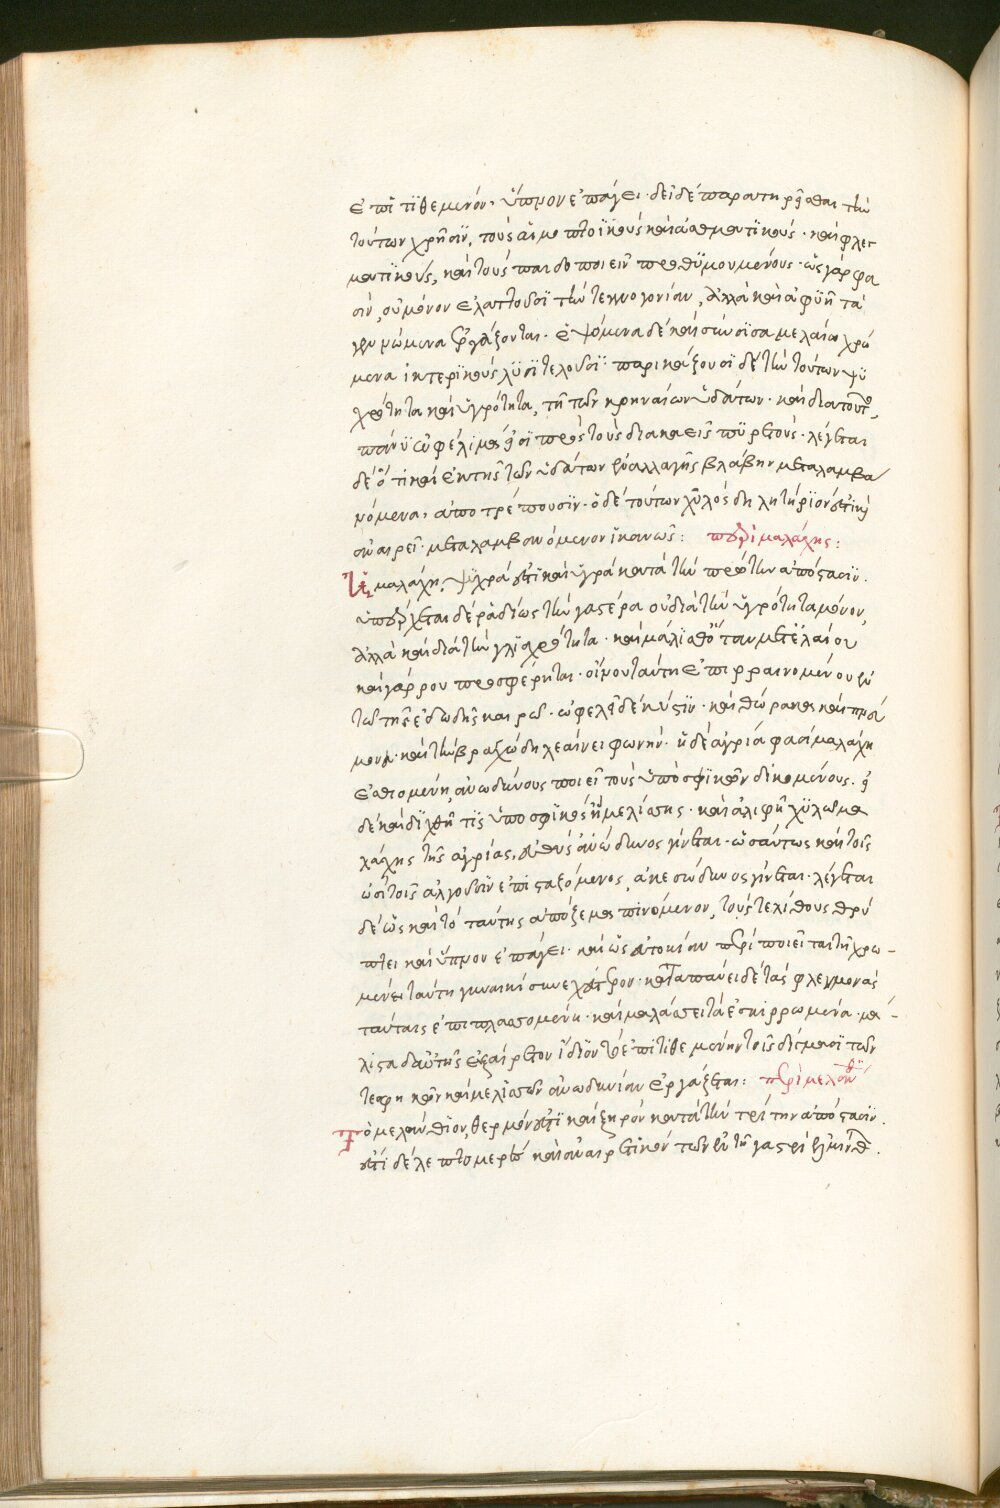 ἐπιτιθεμένον, ὕπνον ἐπάγει· δεῖ δὲ παρατηρεῖσθαι τὴν
τούτων χρῆσιν, τοὺς αἱμοπτοϊκοὺς καὶ ἀσθματικοὺς· καὶ φλεγ
ματικοὺς, καὶ τοὺς παιδοποιεῖν προθυμουμένους· ὥς γάρ φα
σιν, οὐ μόνον ἐλαττοῦσι τὴν τεκνογονίαν, ἀλλὰ καὶ ἀφυῆ τὰ
γεννώμενα ἐργάζονται· ἑψόμενα δὲ καὶ σὺν οἴσα μελαίω χρώ
μενα ἰκτερικοὺς λυσιτελοῦσι· παρικάζουσι δὲ τὴν τούτων ψυ
χρότητα καὶ ὑγρότητα, τῇ τῶν κρηναίων ὑδάτων· καὶ διὰ τοῦτο,
πάνυ ὠφέλιμα εἰσὶ πρὸς τοὺς διακαεῖς πυρετούς· λέγεται
δὲ ὅτι καὶ ἐκ τῆς τῶν ὑδάτων ἐναλλαγῆς βλάβην μεταλαμβα
νόμενα, ἀποτρέπουσιν· ὁ δὲ τούτων χυλὸς δηλητήριον ἐστὶ καὶ
ἀναιρεῖ· μεταλαμβανόμενον ἱκανῶς: περὶ μαλάχης:
Ἡ μαλάχη, ψυχρά ἐστι καὶ ὑγρὰ κατὰ τὴν πρώτην ἀπόστασιν.
ὑπέρχεται δὲ ῥαδίως τὴν γαστέρα οὐ διὰ τὴν ὑγρότητα μόνον,
ἀλλὰ καὶ διὰ τὴν γλισχρότητα· καὶ μάλισθ᾽ ὅταν μετ᾽ ἐλαίου
καὶ γάρρου προσφέρηται· οἴνου ταύτῃ ἐπιρραινομένου ἐν
τῷ τῆς ἐδωδῆς καιρῷ· ὠφελεῖ δὲ κύστιν· καὶ θώρακα καὶ πνεύ
μονα· καὶ τὴν βραγχώδη λεαίνει φωνήν· ἡ δὲ ἀγρία φασὶ μαλάχη
ἐσθιομένη, ἀνωδύνους ποιεῖ τοὺς ὑπὸ σφηκῶν δακνομένους· εἰ
δὲ καὶ δηχθῇ τις ὑπὸ σφηκὸς ἢ μελίσσης· καὶ ἀλιφῇ χύλωμα
χάχης τῆς ἀγρίας, εὐθὺς ἀνώδυνος γίνεται· ὡσαύτως καὶ τοῖς
ὠσὶ τοῖς ἀλγοῦσιν ἐπισταζόμενος, ἀκεσώδυνος γίνεται· λέγεται
δὲ ὡς καὶ τὸ ταύτης ἀπόζεμα πινόμενον, τούς τε λίθους θρύ
πτει καὶ ὕπνον ἐπάγει· καὶ ὡς ἀτοκίαν περιποιεῖται τῇ χρω-
μένῃ ταύτῃ γυναικὶ συνεχέστερον· καταπαύει δὲ τὰς φλεγμονὰς
ταύταις ἐπιπλασσομένη· καὶ μαλάσσει τὰ ἐσκιρρωμένα· μά-
λιστα δὲ αὐτῆς ἐξαίρετον ἴδιον τὸ ἐπιτιθεμένην τοῖς δήγμασι τῶν
τε σφηκῶν καὶ μελισσῶν ἀνωδυνίαν ἐργάζεται: περὶ μελανθίου
Τὸ μελάνθιον, θερμόν ἐστι καὶ ξηρὸν κατὰ τὴν τρίτην ἀπόστασιν.
ἐστὶ δὲ λεπτομερὲς καὶ ἀναιρετικὸν τῶν ἐν τῇ γαστρὶ ἑλμίνθων.